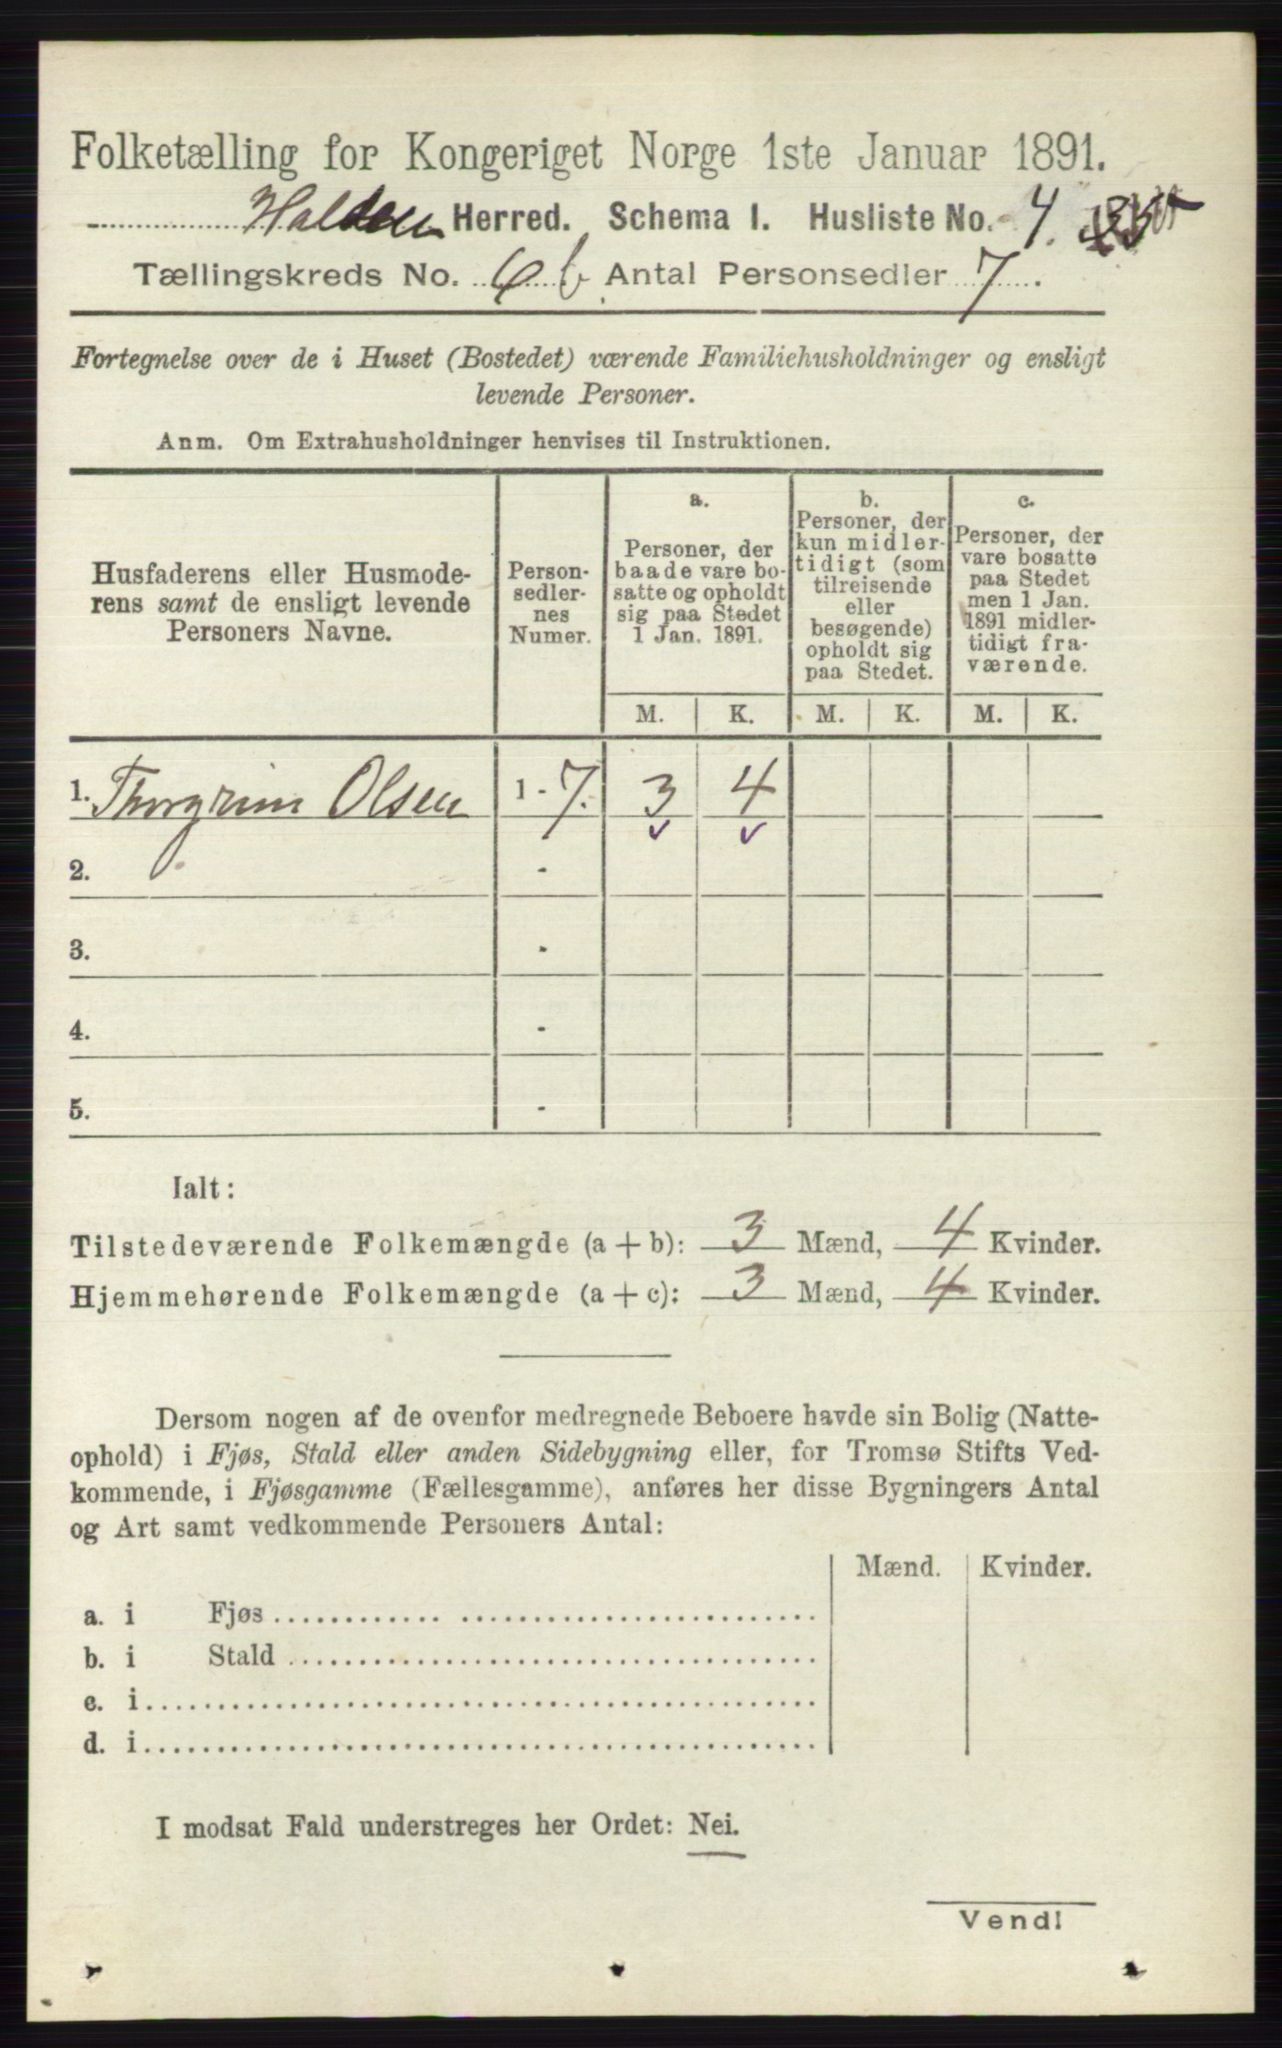 Folketælling for Kongeriget Norge 1ste Januar 1891.
Halden Herred. Schema I. Husliste No. 4.
Tællingskreds No. 6 b Antal Personsedler 7.
Fortegnelse over de i Huset (Bostedet) værende Familiehusholdninger og ensligt
levende Personer.
Anm. Om Extrahusholdninger henvises til Instruktionen.
Husfaderens eller Husmode-
rens samt de ensligt levende
Personers Navne.
Person-
sedler-
nes
Numer.
a.
Personer, der
baade vare bo-
satte og opholdt
sig paa Stedet
1 Jan. 1891.
b.
Personer, der
kun midler-
tidigt (som
tilreisende
eller
besøgende)
opholdt sig
paa Stedet.
c.
Personer, der
vare bosatte
paa Stedet
men 1 Jan.
1891 midler-
tidigt fra-
værende.
M. K. M. K. M. K.
1. Thorgrim Olsen 1 - 7. 3 4
2. -
3. -
4. -
5. -
Ialt:
Tilstedeværende Folkemængde (a + b): 3 Mænd, 4 Kvinder.
Hjemmehørende Folkemængde (a + c): 3 Mænd, 4 Kvinder.
Dersom nogen af de ovenfor medregnede Beboere havde sin Bolig (Natte-
ophold) i Fjøs, Stald eller anden Sidebygning eller, for Tromsø Stifts Ved-
kommende, i Fjøsgamme (Fællesgamme), anføres her disse Bygningers Antal
og Art samt vedkommende Personers Antal:
Mænd. Kvinder.
a. i Fjøs
b. i Stald
c. i
d. i
I modsat Fald understreges her Ordet: Nei.
Vend!